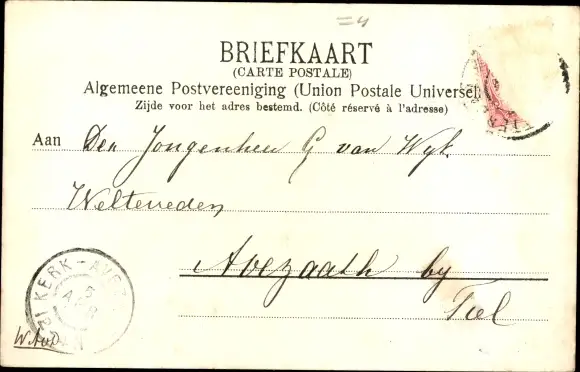 =4
BRIEFKAART
(CARTE POSTALE)
Algemeene Postvereeniging (Union Postale Universel)
Zijde voor het adres bestemd. (Côté réservé à l'adresse)
Aan Den Jongenheer G van Wyk.
Weltevreden
Avezaath by
Tiel
KERK-AVEZ
5
APR
12